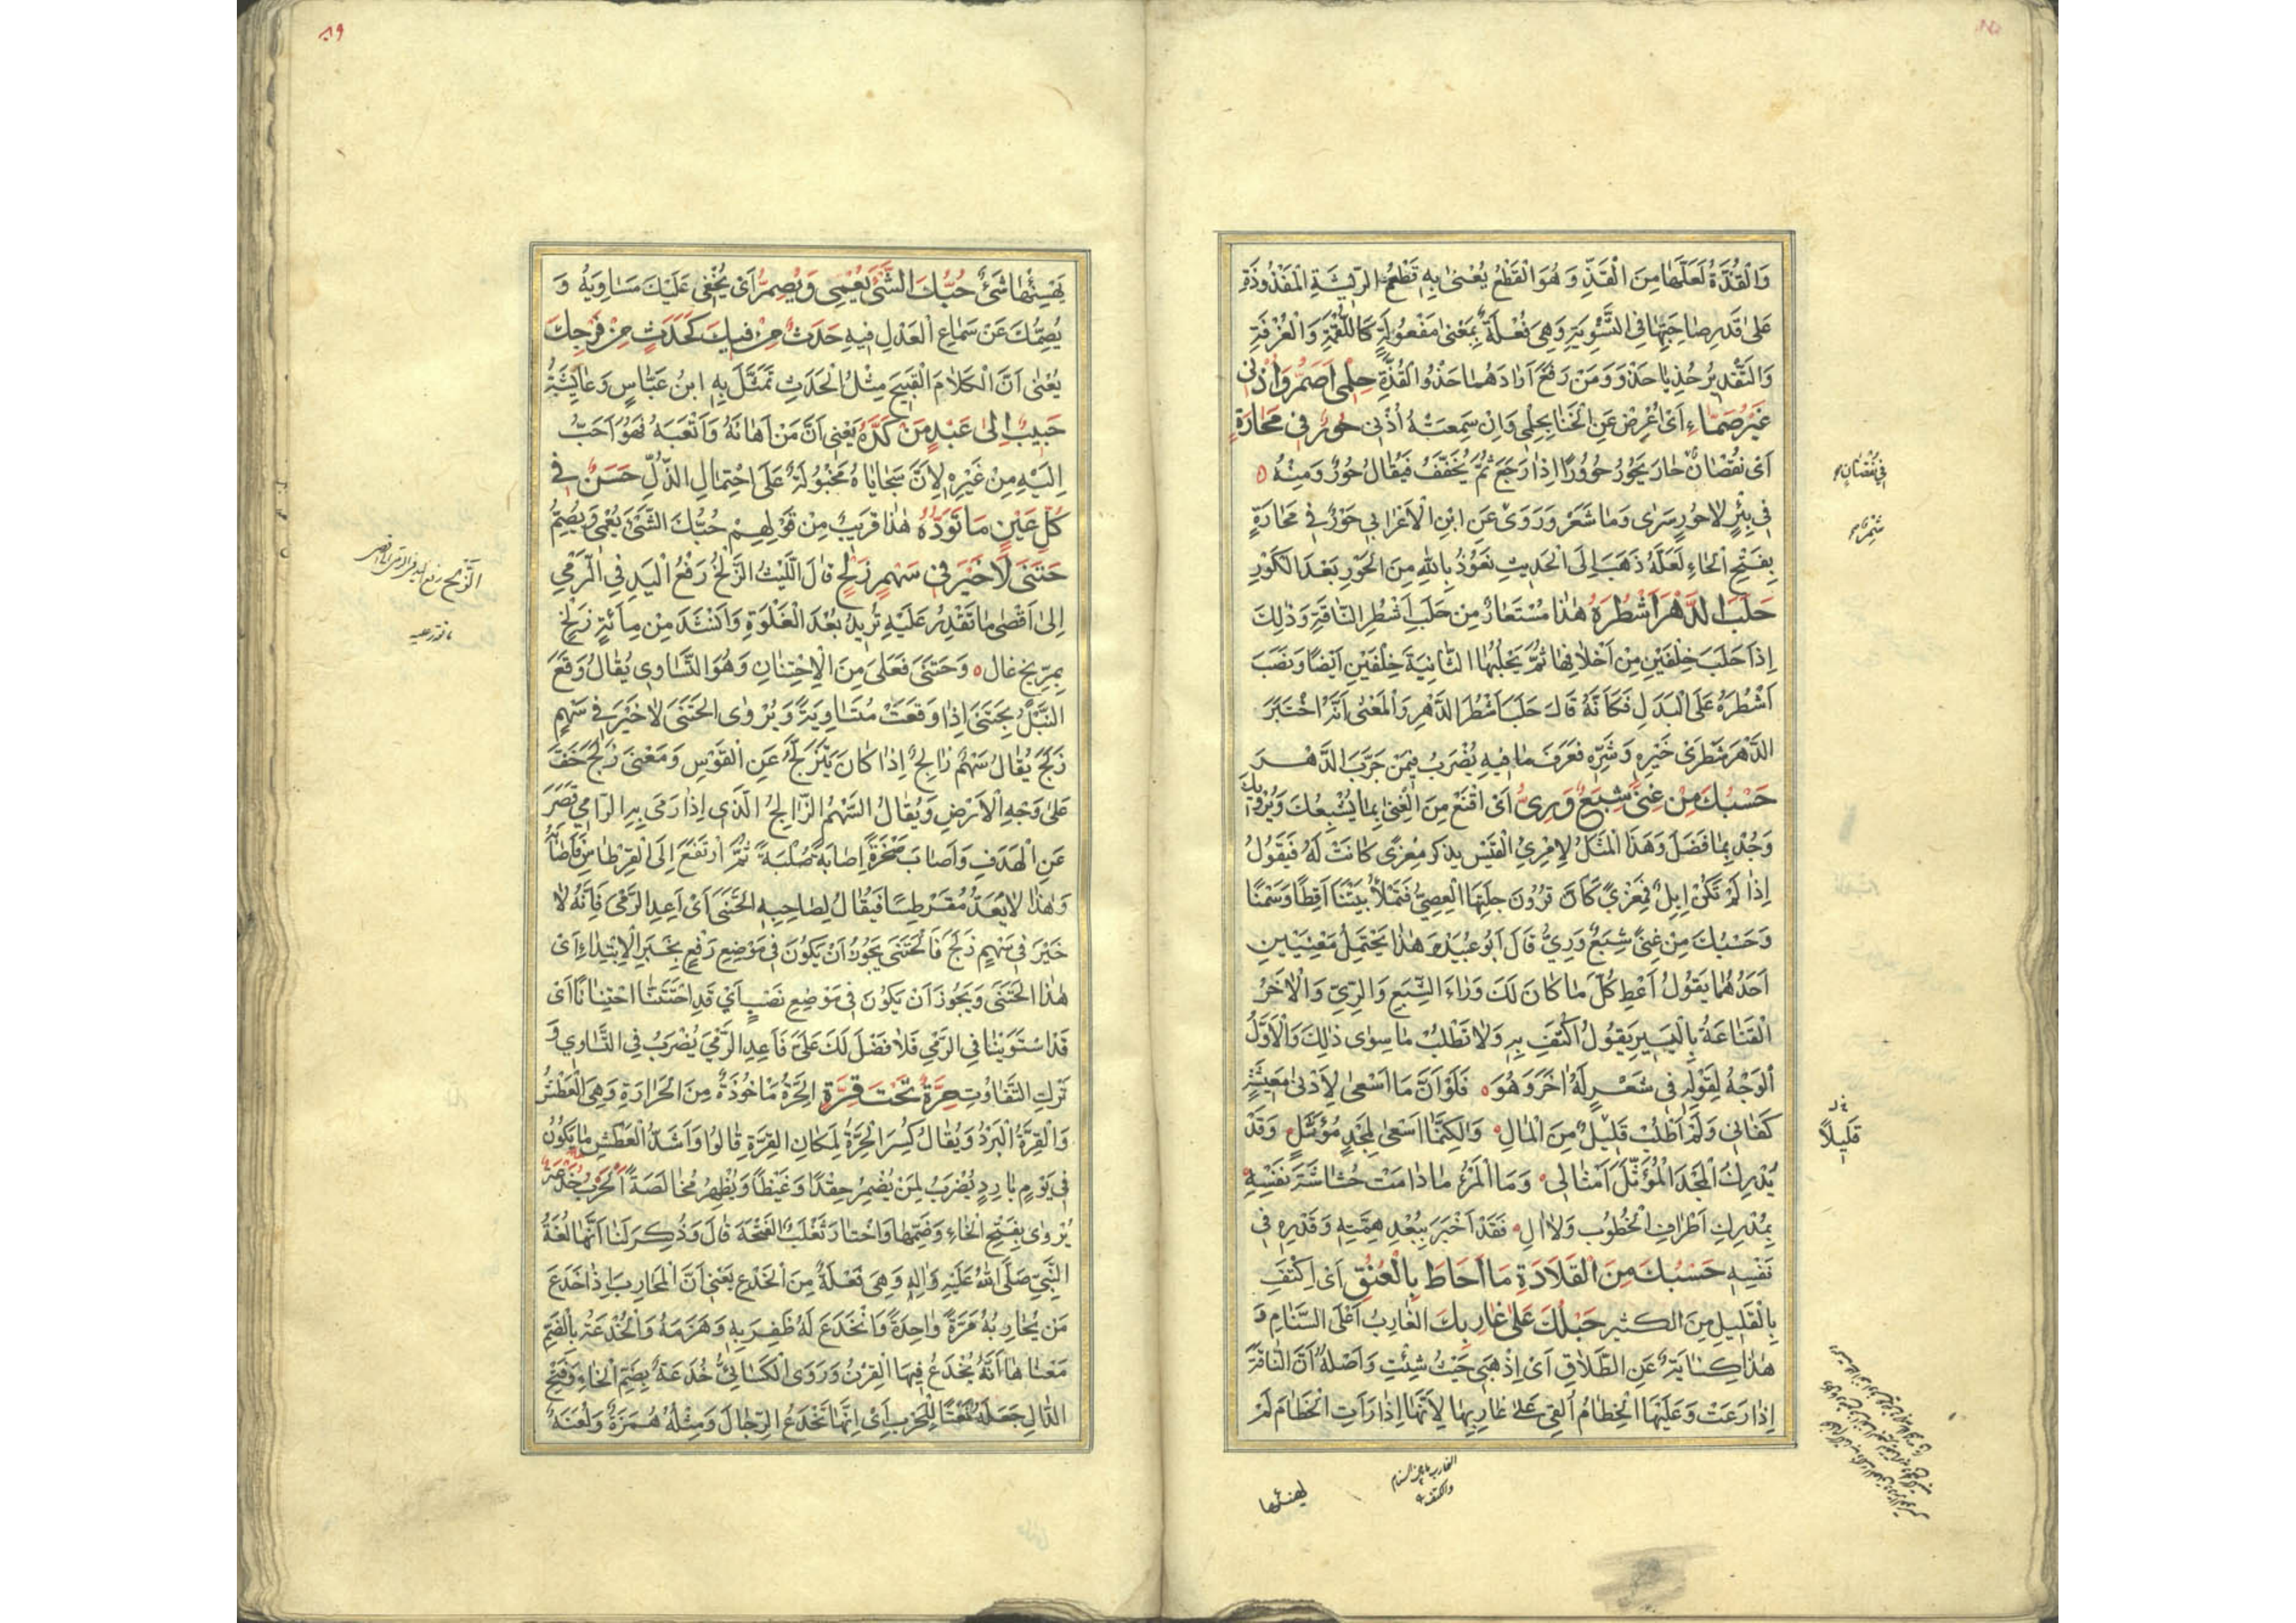 وَالْقُذَّةُ لَعَلَّهَا مِنَ الْقَذِّ وَهُوَ الْقَطْعُ يُعْنىٰ بِهِ قَطْعُ الرِّيْشَةِ الْمَقْذُوذَةِ
عَلىٰ قَدْرِ صَاحِبَتِهَا فِى التَّسْوِيَةِ وَهِىَ فُعْلَةٌ بِمَعْنىٰ مَفْعُولَةٍ كَاللُّقْمَةِ وَالْغُرْفَةِ
وَالتَّقْدِيرُ حُذِيَا حَذْوَ وَمَنْ رَفَعَ اَرَادَ هُمَا حَذْوُ الْقُذَّةِ حِلْمِى اَصَمُّ وَاُذُنِى
غَيْرُ صَمَّاءَ اَىْ اُعْرِضُ عَنِ الْخَنَا بِحِلْمِى وَاِنْ سَمِعَتْهُ اُذُنِى حُورٌ فِى مَحَارَةٍ
اَىْ نُقْصَانٌ حَارَ يَحُورُ حُوُورًا اِذَا رَجَعَ ثُمَّ يُخَفَّفُ فَيُقَالُ حُورٌ وَمِنْهُ ٥
فِى بِئْرِ لَا حُورٍ سَرٰى وَمَا شَعَرْ وَرَوٰى عَنِ ابْنِ الْاَعْرَابِى حَوْرٌ فِى مَحَارَةٍ
بِفَتْحِ الْحَاءِ لَعَلَّهُ ذَهَبَ اِلَى الْحَدِيثِ نَعُوذُ بِاللهِ مِنَ الْحَوْرِ بَعْدَ الْكَوْرِ
حَلَبَ الدَّهْرَ اَشْطُرَهُ هٰذَا مُسْتَعَارٌ مِنْ حَلَبَ اَشْطُرَ النَّاقَةِ وَذٰلِكَ
اِذَا حَلَبَ خِلْفَيْنِ مِنْ اَخْلَافِهَا ثُمَّ يَحْلِبُهَا الثَّانِيَةَ خِلْفَيْنِ اَيْضًا وَنَصَبَ
اَشْطُرَهُ عَلَى الْبَدَلِ فَكَاَنَّهُ قَالَ حَلَبَ اَشْطُرَ الدَّهْرِ وَالْمَعْنىٰ اَنَّهُ اخْتَبَرَ
الدَّهْرَ شَطْرَىْ خَيْرِهِ وَشَرِّهِ فَعَرَفَ مَا فِيهِ يُضْرَبُ فِيمَنْ جَرَّبَ الدَّهْرَ
حَسْبُكَ مِنْ غِنًى شِبَعٌ وَرِىٌّ اَىْ اقْنَعْ مِنَ الْغِنىٰ بِمَا يُشْبِعُكَ وَيُرْوِيكَ
وَجُدْ بِمَا فَضَلَ وَهَذَا الْمَثَلُ لِامْرِئِ الْقَيْسِ يَذْكُرُ مِعْزًى كَانَتْ لَهُ فَيَقُولُ
اِذَا لَمْ تَكُنْ اِبِلٌ فَمِعْزًى كَاَنَّ قُرُونَ جِلَّتِهَا الْعِصِىُّ فَتَمْلَأُ بَيْتَنَا اَقِطًا وَسَمْنًا
وَحَسْبُكَ مِنْ غِنًى شِبَعٌ وَرِىٌّ قَالَ اَبُو عُبَيْدٍ وَهٰذَا يَحْتَمِلُ مَعْنَيَيْنِ
اَحَدُهُمَا يَقُولُ اَعْطِ كُلَّ مَا كَانَ لَكَ وَرَاءَ الشِّبَعِ وَالرِّىِّ وَالْاٰخَرُ
الْقَنَاعَةُ بِالْيَسِيرِ يَقُولُ اكْتَفِ بِهِ وَلَا تَطْلُبْ مَا سِوٰى ذٰلِكَ وَالْاَوَّلُ
الْوَجْهُ لِقَوْلِهِ فِى شَعْرٍ لَهُ اٰخَرَ وَهُوَ ٥ فَلَوْ اَنَّ مَا اَسْعىٰ لِاَدْنىٰ مَعِيشَةٍ
كَفَانِى وَلَمْ اَطْلُبْ قَلِيْلٌ مِنَ الْمَالِ ٥ وَلٰكِنَّمَا اَسْعىٰ لِمَجْدٍ مُؤَثَّلٍ وَقَدْ
يُدْرِكُ الْمَجْدَ الْمُؤَثَّلَ اَمْثَالِى ٥ وَمَا الْمَرْءُ مَا دَامَتْ حُشَاشَةُ نَفْسِهِ ٥
بِمُدْرِكِ اَطْرَافِ الْخُطُوبِ وَلَا اٰلِ ٥ فَقَدْ اَخْبَرَ بِبُعْدِ هِمَّتِهِ وَقَدْرِهِ فِى
نَفْسِهِ حَسْبُكَ مِنَ الْقَلَادَةِ مَا اَحَاطَ بِالْعُنُقِ اَىْ اِكْتَفِ
بِالْقَلِيلِ مِنَ الْكَثِيرِ حَبْلُكَ عَلىٰ غَارِبِكَ الْغَارِبُ اَعْلَى السَّنَامِ وَ
هٰذَا كِنَايَةٌ عَنِ الطَّلَاقِ اَىْ اِذْهَبِى حَيْثُ شِئْتِ وَاَصْلُهُ اَنَّ النَّاقَةَ
اِذَا رَعَتْ وَعَلَيْهَا الْخِطَامُ اُلْقِىَ عَلىٰ غَارِبِهَا لِاَنَّهَا اِذَا رَاَتِ الْخِطَامَ لَمْ
فِى نُقْصَانٍ
قَلِيلًا
الغارب ما بين السنام
والكتف
يهنئها
٨٩
يَهْنِئْهَا شَىْءٌ حُبُّكَ الشَّىْءَ يُعْمِى وَيُصِمُّ اَىْ يُخْفِى عَلَيْكَ مَسَاوِيَهُ وَ
يُصِمُّكَ عَنْ سَمَاعِ الْعَذْلِ فِيهِ حَدَثٌ مِنْ فِيكَ كَحَدَثٍ مِنْ فَرْجِكَ
يُعْنىٰ اَنَّ الْكَلَامَ الْقَبِيحَ مِثْلُ الْحَدَثِ تَمَثَّلَ بِهِ ابْنُ عَبَّاسٍ وَعَايِشَةُ
حَبِيبٌ اِلىٰ عَبْدٍ مَنْ كَدَّهُ يَعْنِى اَنَّ مَنْ اَهَانَهُ وَاَتْعَبَهُ فَهُوَ اَحَبُّ
اِلَيْهِ مِنْ غَيْرِهِ لِاَنَّ سَجَايَاهُ مَجْبُولَةٌ عَلَى احْتِمَالِ الذُّلِّ حَسَنٌ فِى
كُلِّ عَيْنٍ مَا تَوَدُّهُ هٰذَا قَرِيبٌ مِنْ قَوْلِهِمْ حُبُّكَ الشَّىْءَ يُعْمِى وَيُصِمُّ
حَتَنَى لَا خَيْرَ فِى سَهْمٍ زَلْخٍ قَالَ اللَّيْثُ الزَّلْخُ رَفْعُ الْيَدِ فِى الرَّمْىِ
اِلىٰ اَقْصىٰ مَا تَقْدِرُ عَلَيْهِ تُرِيدُ بُعْدَ الْغَلْوَةِ وَاَنْشَدَ مِنْ مِائَةٍ زَلْخٍ
بِمِرِّيخٍ غَالٍ ٥ وَحَتَنَى فَعَلىٰ مِنَ الْاِحْتِتَانِ وَهُوَ التَّسَاوِى يُقَالُ وَقَعَ
النَّبْلُ بِحَتَنَى اِذَا وَقَعَتْ مُتَسَاوِيَةً وَيُرْوٰى الْحَتَنَى لَا خَيْرَ فِى سَهْمٍ
زَلَجَ يُقَالُ سَهْمٌ زَالِجٌ اِذَا كَانَ يَتَزَلَّجُ عَنِ الْقَوْسِ وَمَعْنَى زَلَجَ خَفَّ
عَلىٰ وَجْهِ الْاَرْضِ وَيُقَالُ السَّهْمُ الزَّالِجُ الَّذِى اِذَا رَمَى بِهِ الرَّامِى قَصَرَ
عَنِ الْهَدَفِ وَاَصَابَ صَخْرَةً اِصَابَةً صُلْبَةً ثُمَّ ارْتَفَعَ اِلَى الْقِرْطَاسِ فَاَصَابَهُ
وَهٰذَا لَا يُعَدُّ مُقَرْطِسًا فَيُقَالُ لِصَاحِبِهِ الْحَتَنَى اَىْ اَعِدِ الرَّمْىَ فَاِنَّهُ لَا
خَيْرَ فِى سَهْمٍ زَلَجَ فَالْحَتَنَى يَجُوزُ اَنْ يَكُونَ فِى مَوْضِعِ رَفْعٍ بِخَبَرِ الْاِبْتِدَاءِ اَىْ
هٰذَا الْحَتَنَى وَيَجُوزُ اَنْ يَكُونَ فِى مَوْضِعِ نَصْبٍ اَىْ قَدِ احْتَتَنَّا احْتِتَانًا اَىْ
قَدِ اسْتَوَيْنَا فِى الرَّمْىِ فَلَا فَضْلَ لَكَ عَلَىَّ فَاَعِدِ الرَّمْىَ يُضْرَبُ فِى التَّسَاوِى وَ
تَرْكِ التَّفَاوُتِ حِرَّةٌ تَحْتَ قِرَّةٍ الْحَرَّةُ مَاْخُوذَةٌ مِنَ الْحَرَارَةِ وَهِىَ الْعَطَشُ
وَالْقِرَّةُ الْبَرْدُ وَيُقَالُ كُسِرَ الْحِرَّةُ لِمَكَانِ الْقِرَّةِ قَالُوا وَاَشَدُّ الْعَطَشِ مَا يَكُونُ
فِى يَوْمٍ بَارِدٍ يُضْرَبُ لِمَنْ يُضْمِرُ حِقْدًا وَغَيْظًا وَيُظْهِرُ مُخَالَصَةً اَلْحَرْبُ خُدْعَةٌ
يُرْوٰى بِفَتْحِ الْخَاءِ وَضَمِّهَا وَاخْتَارَ ثَعْلَبٌ الْفَتْحَةَ قَالَ وَذُكِرَ لَنَا اَنَّهَا لُغَةُ
النَّبِىِّ صَلَّى اللهُ عَلَيْهِ وَاٰلِهِ وَهِىَ فَعْلَةٌ مِنَ الْخَدْعِ يَعْنِى اَنَّ الْمُحَارِبَ اِذَا خَدَعَ
مَنْ يُحَارِبُهُ مَرَّةً وَاحِدَةً وَانْخَدَعَ لَهُ ظَفِرَ بِهِ وَهَزَمَهُ وَالْخُدْعَةُ بِالضَّمِّ
مَعْنَاهَا اَنَّهُ يُخْدَعُ فِيهَا الْقِرْنُ وَرَوَى الْكَسَائِىُّ خُدَعَةٌ بِضَمِّ الْخَاءِ وَفَتْحِ
الدَّالِ جَعَلَهُ نَعْتًا لِلْحَرْبِ اَىْ اِنَّهَا تَخْدَعُ الرِّجَالَ وَمِثْلُهُ هُمَزَةٌ وَلُعَنَةٌ